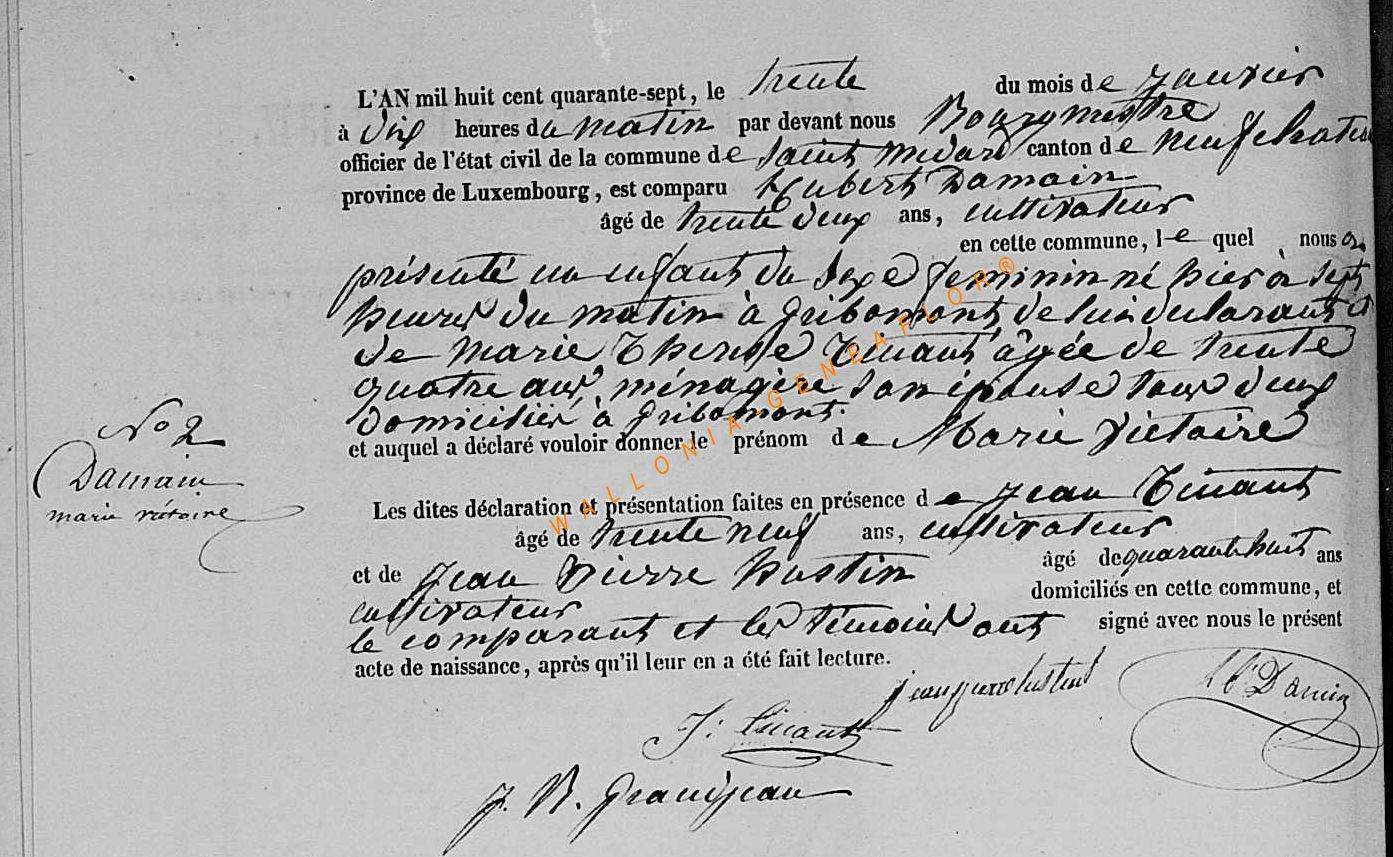 L'AN mil huit cent quarante-sept, le trente du mois de Janvier
à dix heures du matin par devant nous Bourgmestre
officier de l'état civil de la commune de Saint Médard canton de Neufchateau
province de Luxembourg, est comparu Hubert Damain
âgé de trente deux ans, cultivateur
en cette commune, le quel nous a
présenté un enfant du sexe feminin né hier à sept
heures du matin à Gribomont, de lui déclarant et
de Marie Therese Tinant âgée de trente
quatre ans, ménagère son épouse tous deux
domiciliés à Gribomont.
et auquel a déclaré vouloir donner le prénom de Marie Victoire
No 2
Damain
marie victoire
Les dites déclaration et présentation faites en présence de Jean Tinant
âgé de trente neuf ans, cultivateur
et de Jean Pierre Hustin âgé de quarante huit ans
cultivateur domiciliés en cette commune, et
le comparant et les témoins ont signé avec nous le présent
acte de naissance, après qu'il leur en a été fait lecture.
jean pierre hustin H Damin
J: Tinant
J. B. Grandjean
WALLONIA-GENEAFLOR®